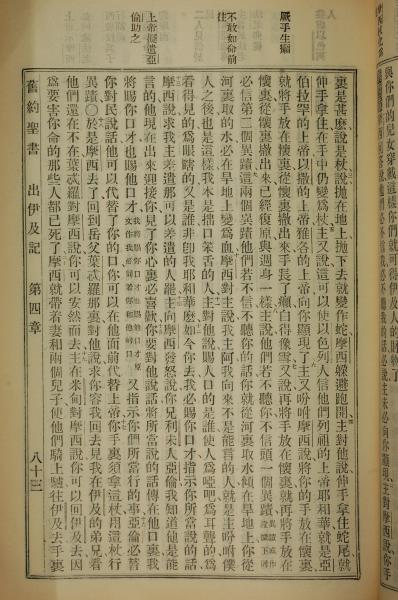 與你們的兒女穿戴這樣你們就可得伊及人的財物了
厥手生癩
不敢如命前
往
上帝擬遣亞
倫助之
裏是甚麽說是杖說拋在地上拋下去就變作蛇摩西躱避跑開主對他說伸手拿住蛇尾就
伸手拿住在手中仍變爲杖主又說這可以使以色列人信他們列祖的上帝耶和華就是亞
伯拉罕的上帝以撒的上帝雅各的上帝向你顯現了主又吩咐摩西說將你的手放在懷裏
就將手放在懷裏從懷裏撤出來手長了癩白得像雪又說再將手放在懷裏就再將手放在
懷裏從懷裏撤出來已經復原與週身一樣主說他們若不聽你不信頭一個異蹟
必信第二個異蹟這兩個異蹟他們若不信不聽你的話你就從河裏取水傾在旱地上你從
河裏取的水必在旱地上變爲血摩西對主說我主阿我向來不是能言的人就是主吩咐僕
人之後也是這樣我本是拙口笨舌的人主對他說賜人口的是誰使人爲啞吧爲耳聾的爲
看得見的爲眼瞎的又是誰非卽我耶和華麽如今你去我必賜你口才指示你所當說的話
摩西說求我主差遣那可以差遣的人罷主向摩西發怒說你兄利未人亞倫我知道他是能
言的他現在出來迎接你見了你心裏必喜歡你要對他說話將所當說的話傳在他口裏我
將賜你口才也賜他口才又指示你們所當行的事亞倫必替
你對民說話他可以代替了你的口你可以在他面前代替上帝你手裏須拿這杖用這杖行
異蹟○於是摩西去了回到岳父葉忒羅那裏對他說求你容我回去見我在伊及的弟兄看
他們還在不在葉忒羅對摩西說你可以安然而去主在米甸對摩西說你可以回伊及去因
爲要害你命的那些人都已死了摩西就帶着妻和兩個兒子使他們騎上驢往伊及去手裏
舊約聖書 出伊及記 第四章 八十三